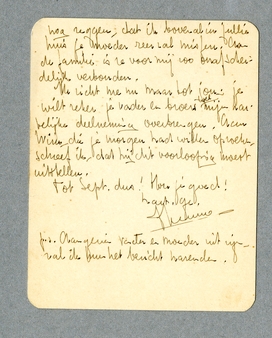 nog zeggen, dat ik bovenal in jullie
huis je moeder zeer zal missen.
de familie is ze voor mij zoo onafschei-
delijk verbonden.
Ik richt me nu maar tot jou; je
wilt zeker je vader en broers mijn har-
telijke deelneming overbrengen. Aan
Wim, die je morgen had willen opzoeken
schreef ik, dat hij dit voorloopig moest
uitstellen.
Tot Sept. dus! Hou je goed!
Hart. gr.
p.s. vader en moeder uit
het bericht